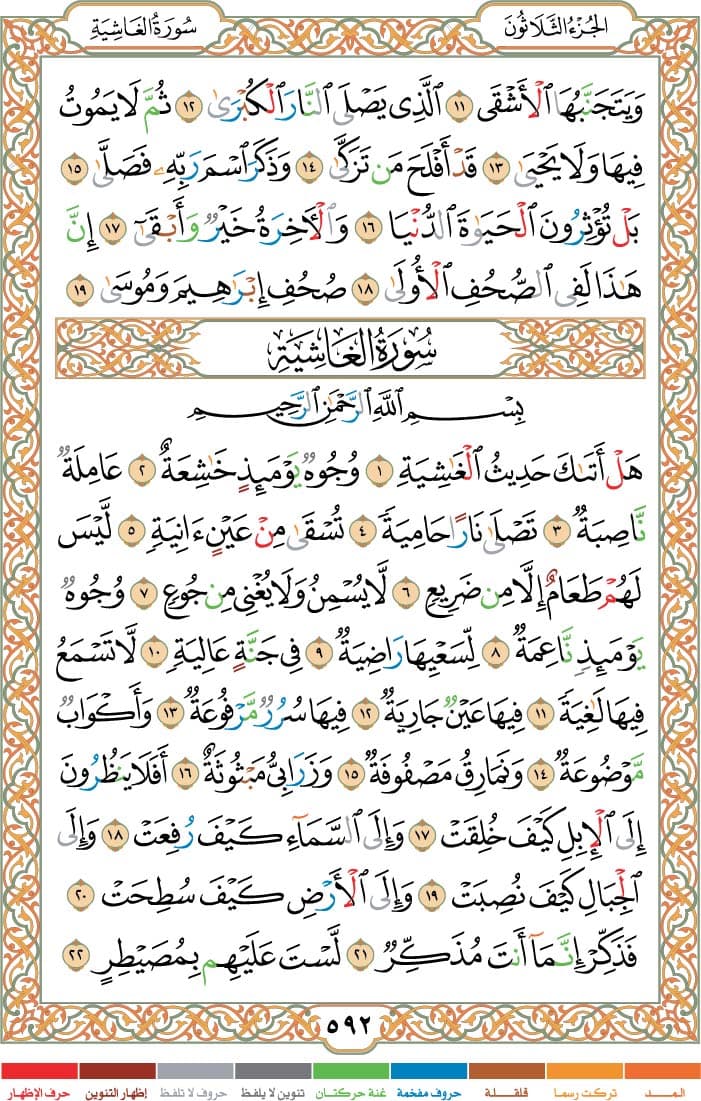 الجزء الثلاثون
سورة الغاشية
وَيَتَجَنَّبُهَا ٱلْأَشْقَى ١١ ٱلَّذِى يَصْلَى ٱلنَّارَ ٱلْكُبْرَىٰ ١٢ ثُمَّ لَا يَمُوتُ
فِيهَا وَلَا يَحْيَىٰ ١٣ قَدْ أَفْلَحَ مَن تَزَكَّىٰ ١٤ وَذَكَرَ ٱسْمَ رَبِّهِۦ فَصَلَّىٰ ١٥
بَلْ تُؤْثِرُونَ ٱلْحَيَوٰةَ ٱلدُّنْيَا ١٦ وَٱلْـَٔاخِرَةُ خَيْرٌ وَأَبْقَىٰٓ ١٧ إِنَّ
هَـٰذَا لَفِى ٱلصُّحُفِ ٱلْأُولَىٰ ١٨ صُحُفِ إِبْرَٰهِيمَ وَمُوسَىٰ ١٩
سُورَةُ الغَاشِيَةِ
بِسْمِ ٱللَّهِ ٱلرَّحْمَـٰنِ ٱلرَّحِيمِ
هَلْ أَتَىٰكَ حَدِيثُ ٱلْغَـٰشِيَةِ ١ وُجُوهٌ يَوْمَئِذٍ خَـٰشِعَةٌ ٢ عَامِلَةٌ
نَّاصِبَةٌ ٣ تَصْلَىٰ نَارًا حَامِيَةً ٤ تُسْقَىٰ مِنْ عَيْنٍ ءَانِيَةٍ ٥ لَّيْسَ
لَهُمْ طَعَامٌ إِلَّا مِن ضَرِيعٍ ٦ لَّا يُسْمِنُ وَلَا يُغْنِى مِن جُوعٍ ٧ وُجُوهٌ
يَوْمَئِذٍ نَّاعِمَةٌ ٨ لِّسَعْيِهَا رَاضِيَةٌ ٩ فِى جَنَّةٍ عَالِيَةٍ ١٠ لَّا تَسْمَعُ
فِيهَا لَـٰغِيَةً ١١ فِيهَا عَيْنٌ جَارِيَةٌ ١٢ فِيهَا سُرُرٌ مَّرْفُوعَةٌ ١٣ وَأَكْوَابٌ
مَّوْضُوعَةٌ ١٤ وَنَمَارِقُ مَصْفُوفَةٌ ١٥ وَزَرَابِىُّ مَبْثُوثَةٌ ١٦ أَفَلَا يَنظُرُونَ
إِلَى ٱلْإِبِلِ كَيْفَ خُلِقَتْ ١٧ وَإِلَى ٱلسَّمَآءِ كَيْفَ رُفِعَتْ ١٨ وَإِلَى
ٱلْجِبَالِ كَيْفَ نُصِبَتْ ١٩ وَإِلَى ٱلْأَرْضِ كَيْفَ سُطِحَتْ ٢٠
فَذَكِّرْ إِنَّمَآ أَنتَ مُذَكِّرٌ ٢١ لَّسْتَ عَلَيْهِم بِمُصَيْطِرٍ ٢٢
٥٩٢
المــــد تركت رسما قلقـــلة حروف مفخمة غنة حركتان تنوين لا يلفظ حروف لا تلفظ إظهار التنوين حرف الإظهار